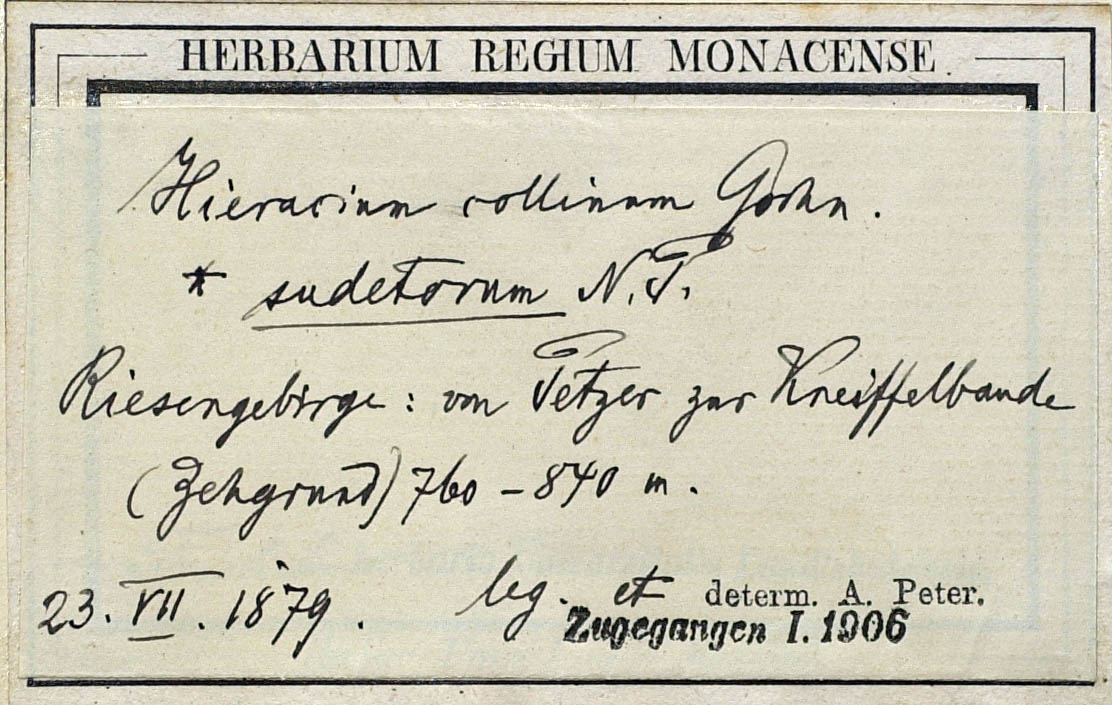 HERBARIUM REGIUM MONACENSE
Hieracium collinum Gochn.
* sudetorum N.P.
Riesengebirge: von Petzer zur Kneiffelbaude
(Zehgrund) 760 – 840 m.
23. VII. 1879. leg. et determ. A. Peter.
Zugegangen I. 1906